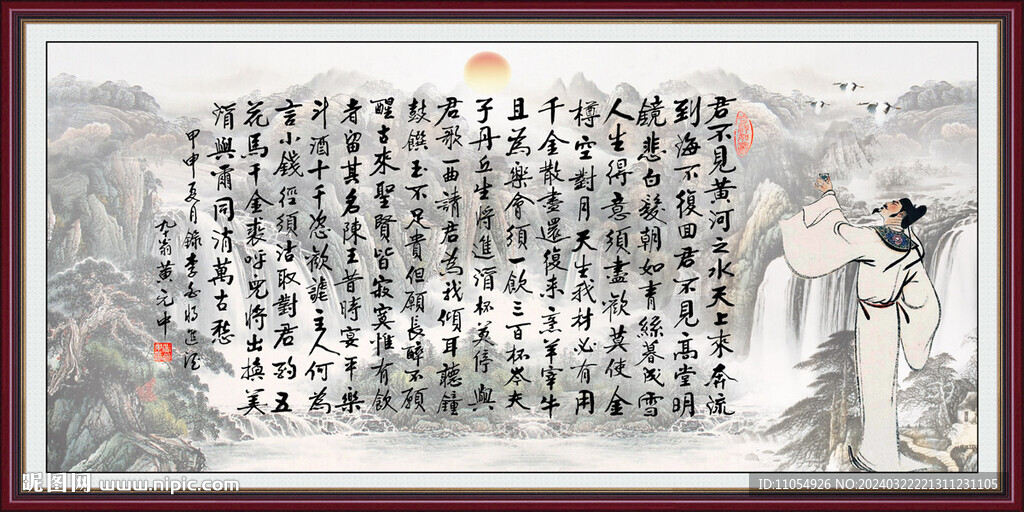 君不見黃河之水天上來奔流
到海不復回君不見高堂明
鏡悲白髮朝如青絲暮成雪
人生得意須盡歡莫使金
樽空對月天生我材必有用
千金散盡還復來烹羊宰牛
且為樂會須一飲三百杯岑夫
子丹丘生將進酒杯莫停與
君歌一曲請君為我傾耳聽鐘
鼓饌玉不足貴但願長醉不願
醒古來聖賢皆寂寞惟有飲
者留其名陳王昔時宴平樂
斗酒十千恣歡謔主人何為
言少錢徑須沽取對君酌五
花馬千金裘呼兒將出換美
酒與爾同消萬古愁
甲申夏月錄李白將進酒
九翁黃元中
昵图网 www.nipic.com
ID:11054926 NO:20240322221311231105